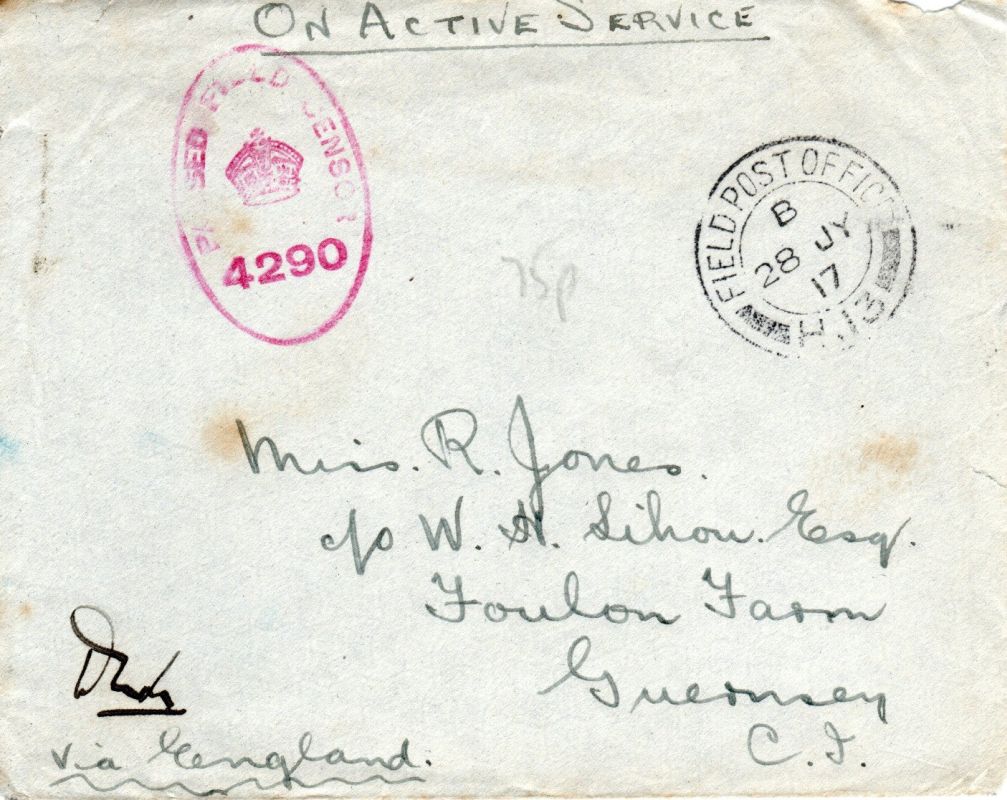 ON ACTIVE SERVICE
PASSED FIELD CENSOR
4290
FIELD POST OFFICE
B
28 JY
17
H.13
75p
Miss. R. Jones.
c/o W. H. Sihou. Esq.
Foulon Farm
Guernsey
C. I.
via England.